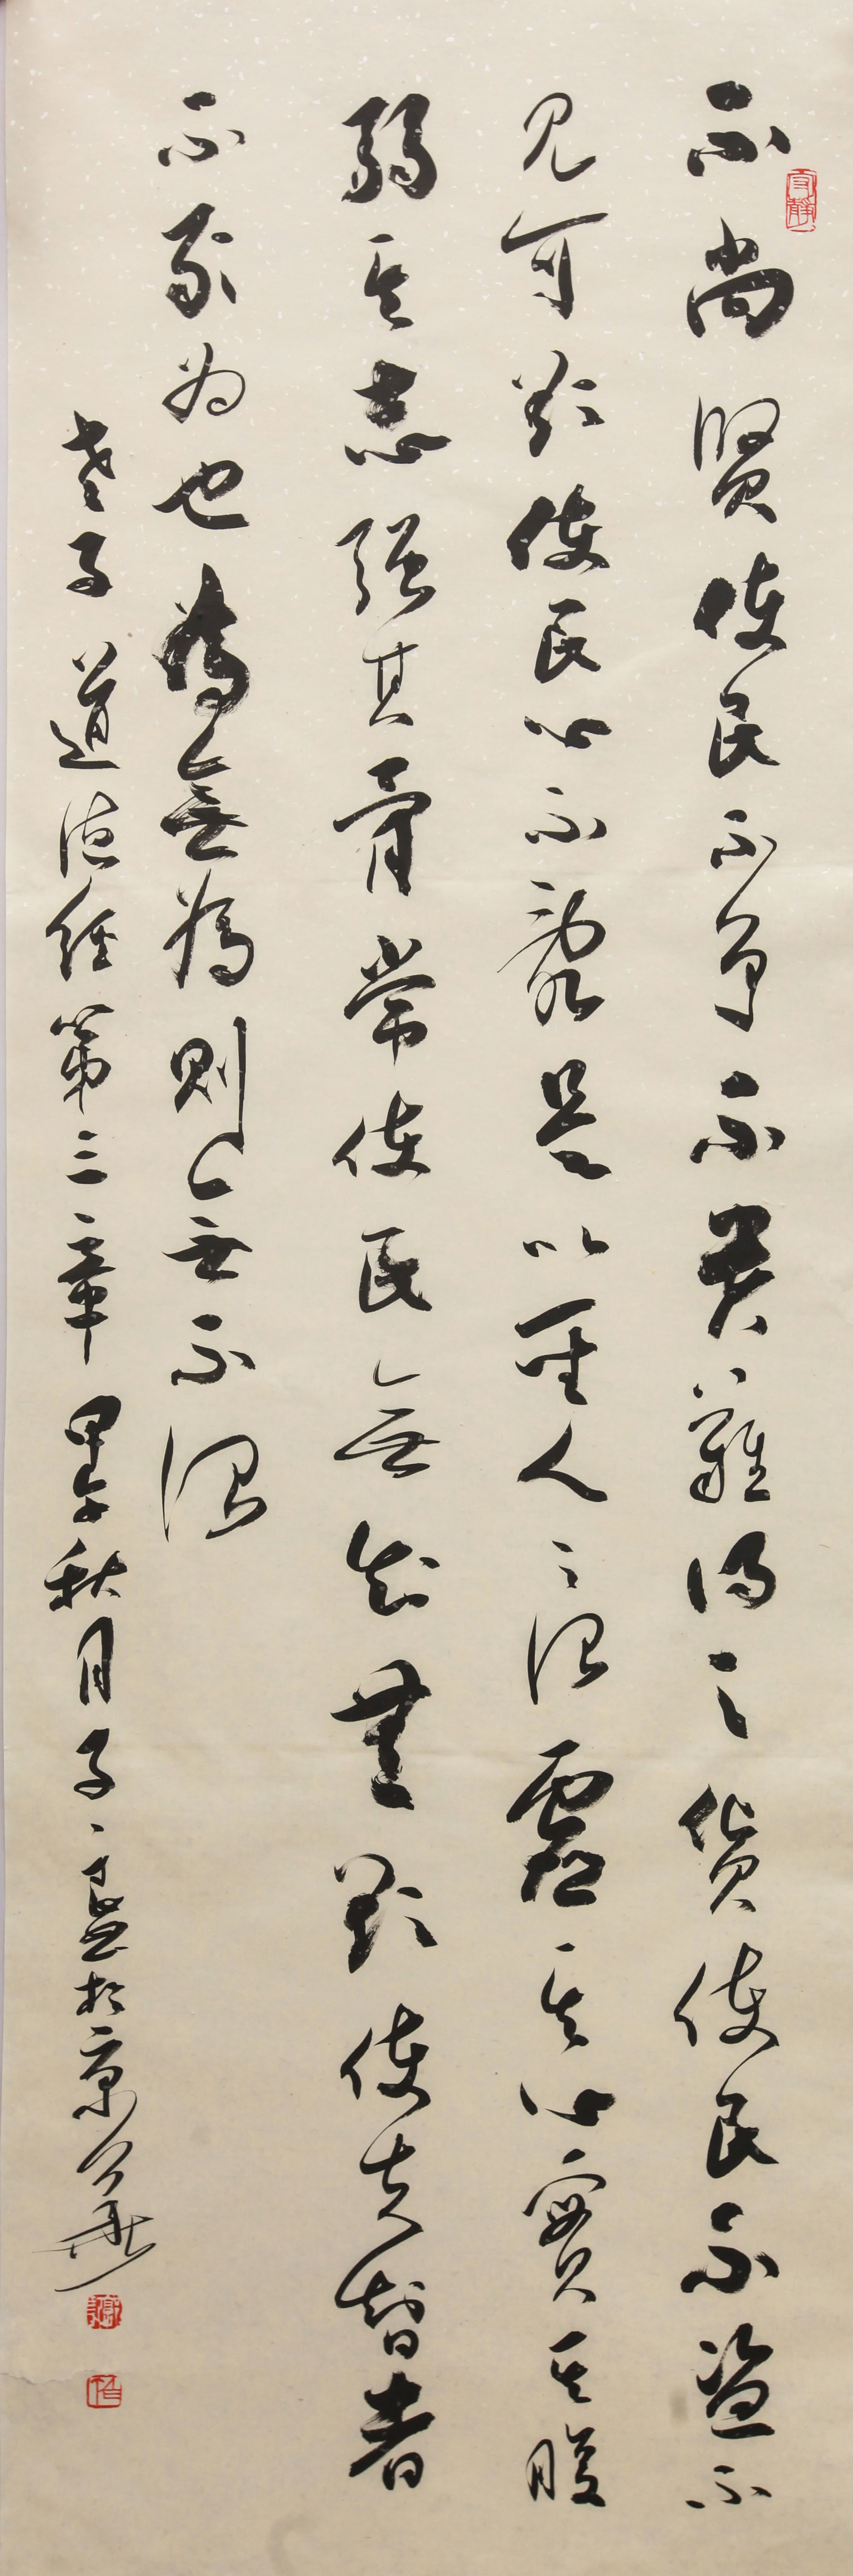 不尚賢使民不争不貴難得之货使民不盗不
見可欲使民心不亂是以聖人之治虛其心實其腹
弱其志强其骨常使民無知無欲使夫智者
不敢为也為無為則無不治
老子道德經第三章甲午秋月子 於京華